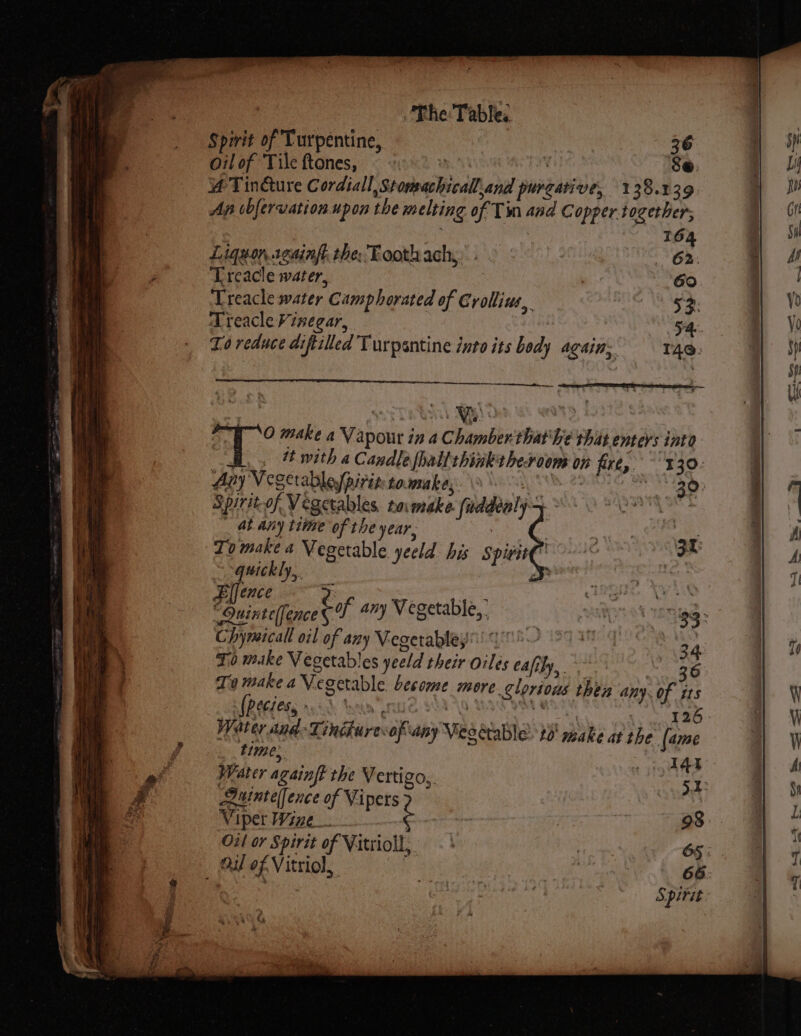 The Table.
Spirit of Turpentine, 36
Oil of Tile ſtones, 80
A Tincture Cordiall, Stomachicall, and purgative, 138.139
An obſervation upon the melting of Tin and Copper together,
164
Liquor againſt the Tooth ach, 62
Treacle water, 60
Treacle water Camphorated of Crollius, 53
Treacle Vinegar, 54
To reduce diſtilled Turpentine into its body again, 140
V
TO make a Vapour in a Chamber that he that enters into
it with a Candle ſhall think the room on fire, 130
Any Vegetable ſpirit to make, 30
Spirit of Vegetables to make ſuddenly
at any time of the year,
To make a Vegetable yeeld his Spirit 31
quickly,
Eſſence
Quinteſſence of any Vegetable, 33
Chymicall oil of any Vegetable, 34
To make Vegetables yeeld their Oiles eaſily, 36
To make a Vegetable become more glorious then any of its
ſpecies, 126
Water and Tincture of any Vegetable to make at the ſame
time, 141
Water againſt the Vertigo, 51
Quinteſſence of Vipers
Viper Wine 98
Oil or Spirit of Vitrioll, 65
Oil of Vitriol, 66
Spirit